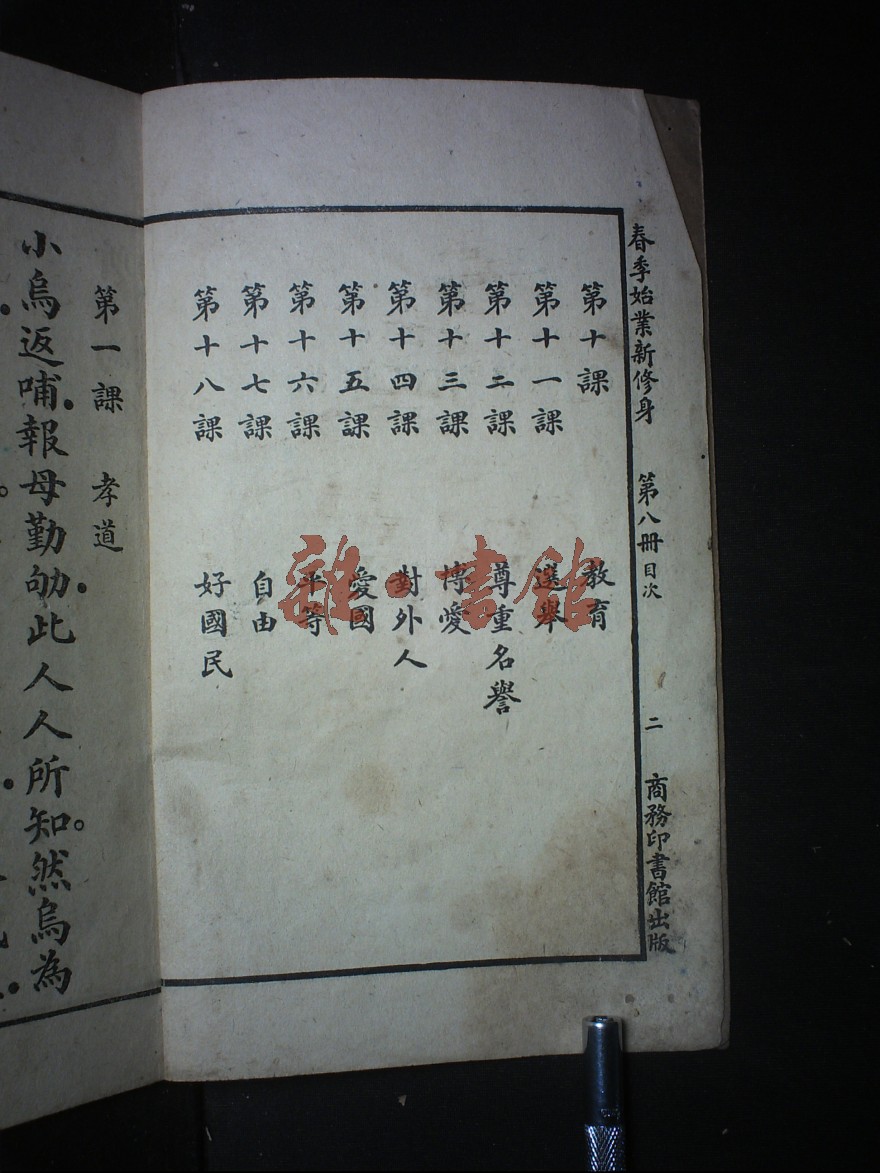 春季始業新修身 第八冊 目次 二 商務印書館出版
第十課 教育
第十一課 選舉
第十二課 尊重名譽
第十三課 博愛
第十四課 對外人
第十五課 愛國
第十六課 平等
第十七課 自由
第十八課 好國民
雜·書館
第一課 孝道
小烏返哺。報母勤劬。此人人所知。然烏為